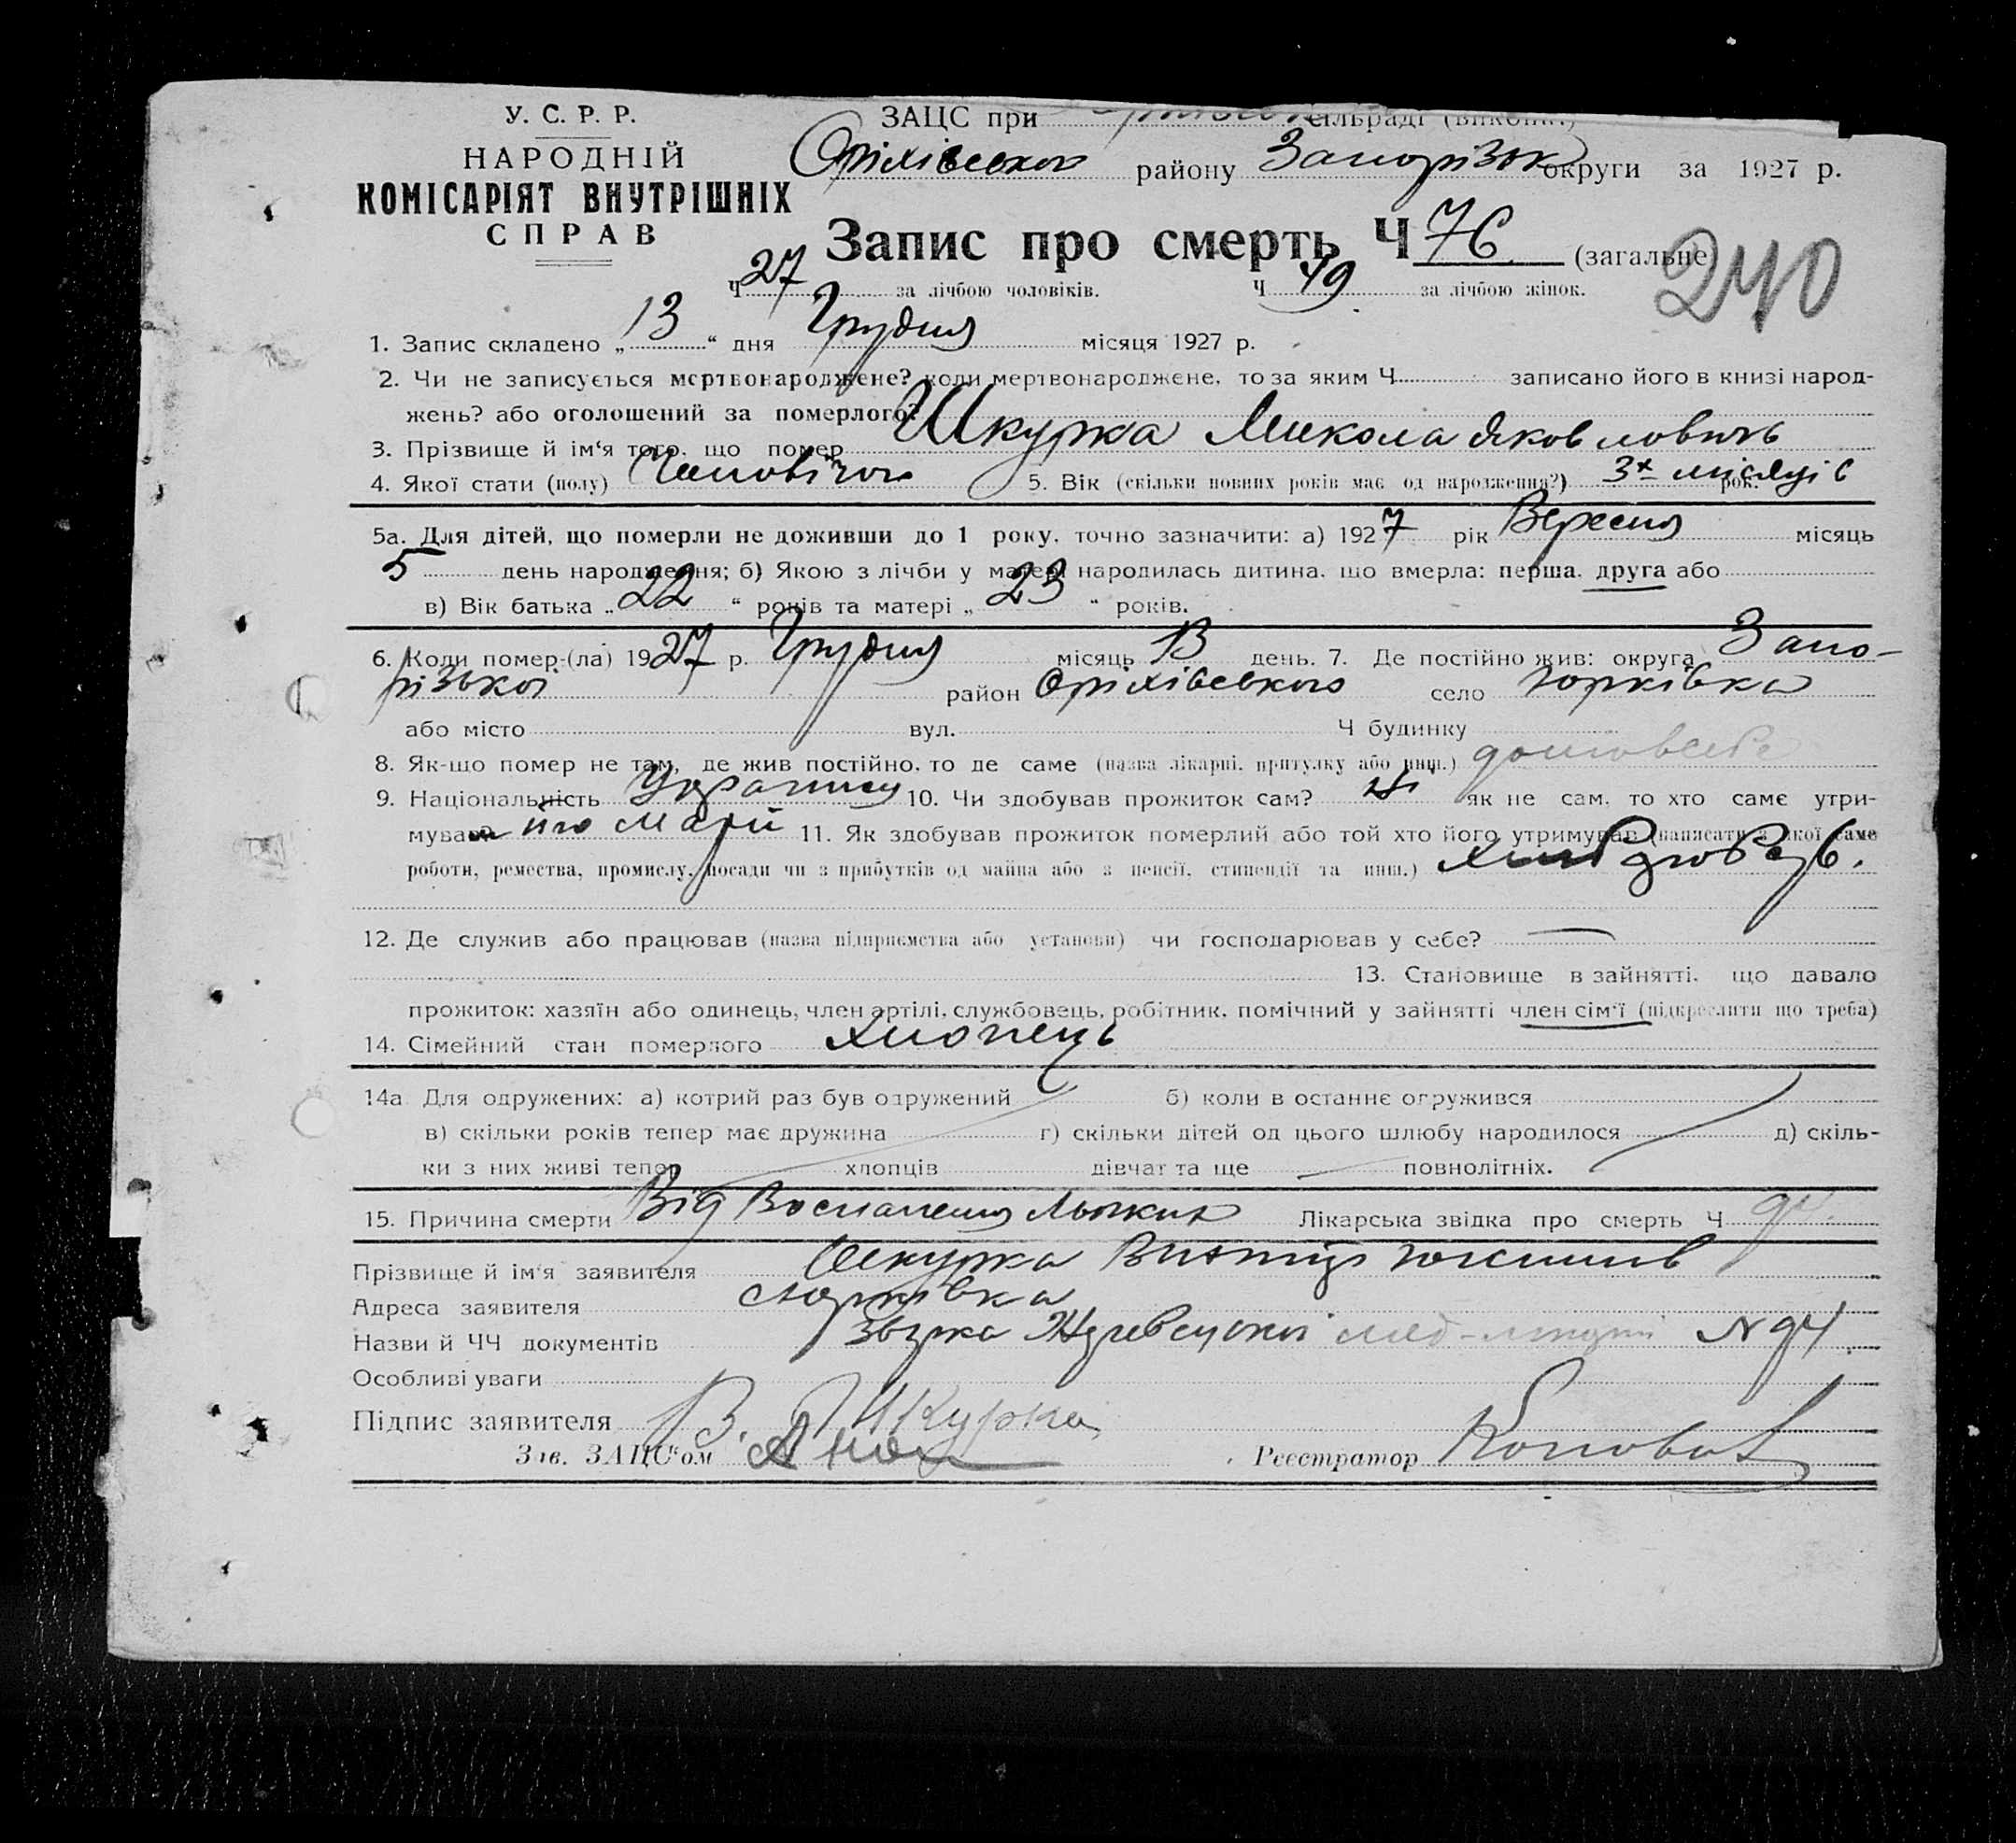 У. С. Р. Р.
НАРОДНІЙ
КОМІСАРІЯТ ВНУТРІШНІХ
СПРАВ
ЗАЦС при сільраді (виконк.)
Оріхівського району Запорізьк округи за 1927 р.
Запис про смерть Ч 76 (загальне)
240
Ч 27 за лічбою чоловіків. Ч 49 за лічбою жінок.
1. Запис складено „ 13 “ дня Грудня місяця 1927 р.
2. Чи не записується мертвонароджене? коли мертвонароджене, то за яким Ч записано його в книзі народ-
жень? або оголошений за померлого?
3. Прізвище й ім'я того, що помер Шкурка Микола Яковлович
4. Якої стати (полу) Чоловічої 5. Вік (скільки повних років має од народження?) 3х місяців рок.
5а. Для дітей, що померли не доживши до 1 року, точно зазначити: а) 1927 рік Вересня місяць
5 день народження; б) Якою з лічби у матері народилась дитина, що вмерла: перша, друга або
в) Вік батька „ 22 “ років та матері „ 23 “ років.
6. Коли помер-(ла) 1927 р. Грудня місяць 13 день. 7. Де постійно жив: округа Запо-
різької район Оріхівського село Юрківка
або місто вул. Ч будинку
8. Як-що помер не там, де жив постійно, то де саме (назва лікарні, притулку або инш.)
9. Національність 10. Чи здобував прожиток сам? ні як не сам, то хто саме утри-
мував? 11. Як здобував прожиток померлий або той хто його утримував (написати з якої саме
роботи, ремества, промислу, посади чи з прибутків од майна або з пенсії, стипендії та инш.)
12. Де служив або працював (назва підприємства або установи) чи господарював у себе? —
13. Становище в зайнятті, що давало
прожиток: хазяїн або одинець, член артілі, службовець, робітник, помічний у зайнятті член сім'ї (підкреслити що треба)
14. Сімейний стан померлого хлопець
14а Для одружених: а) котрий раз був одружений б) коли в останнє огружився
в) скільки років тепер має дружина г) скільки дітей од цього шлюбу народилося д) скіль-
ки з них живі тепер хлопців дівчат та ще повнолітніх.
15. Причина смерти Від Воспаления Льогких Лікарська звідка про смерть Ч 94.
Прізвище й ім'я заявителя Шкурка
Адреса заявителя с Юрківка
Назви й ЧЧ документів N 94
Особливі уваги
Підпис заявителя В. Шкурка
Зав. ЗАЦС'ом Реєстратор